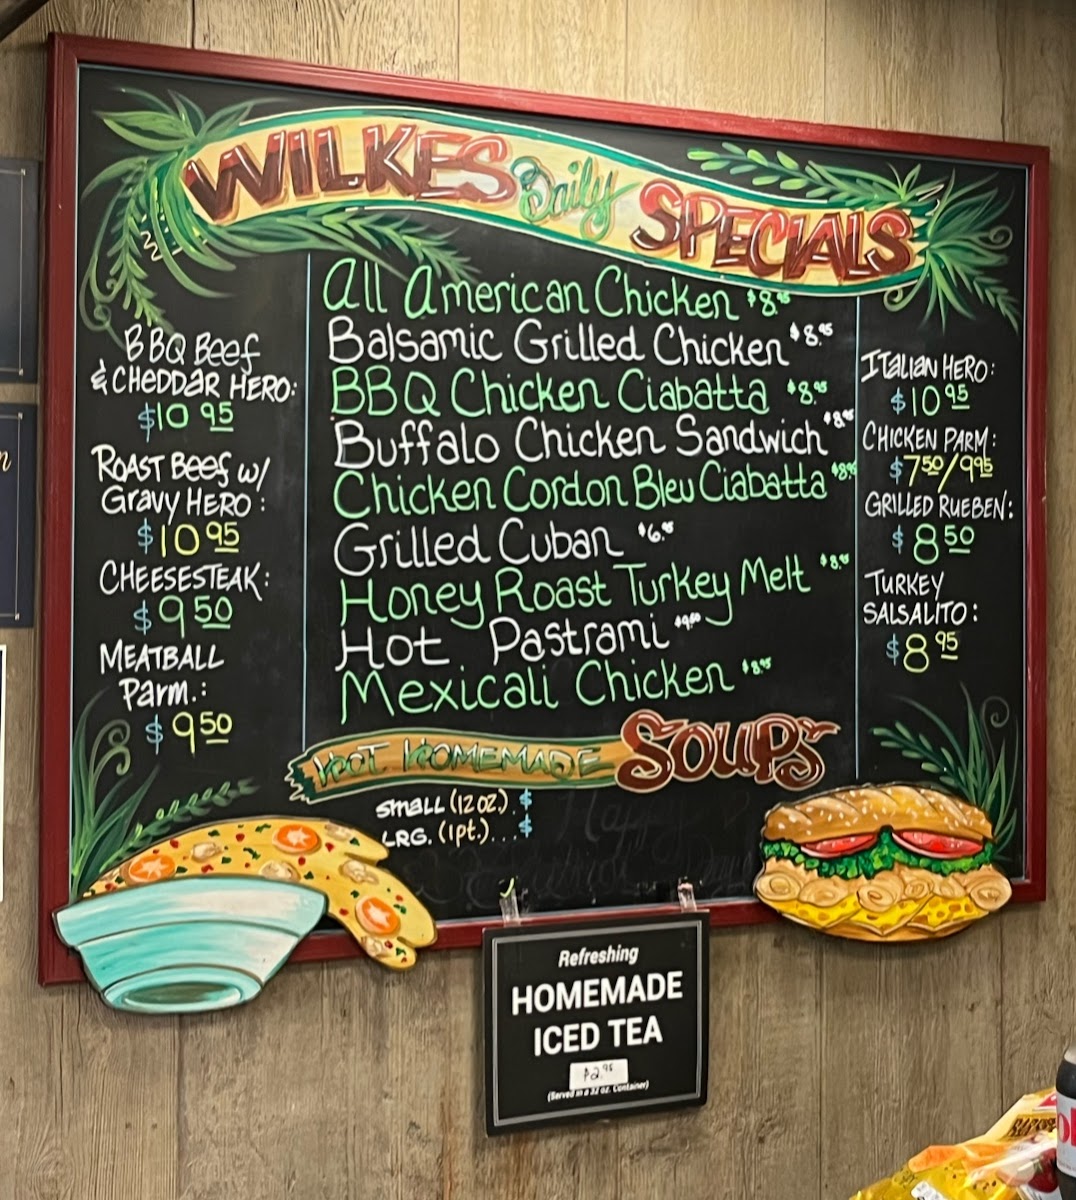 WILKES Daily SPECIALS
BBQ Beef
& CHEDDAR HERO:
$10 95
ROAST BEEF W/
GRAVY HERO:
$10 95
CHEESESTEAK:
$9 50
MEATBALL
Parm.:
$9 50
All American Chicken $8.95
Balsamic Grilled Chicken $8.95
BBQ Chicken Ciabatta $8.95
Buffalo Chicken Sandwich $8.95
Chicken Cordon Bleu Ciabatta $8.95
Grilled Cuban $6.95
Honey Roast Turkey Melt $8.95
Hot Pastrami $9.50
Mexicali Chicken $8.95
ITALIAN HERO:
$10 95
CHICKEN PARM:
$7 50/9 95
GRILLED RUEBEN:
$8 50
TURKEY
SALSALITO:
$8 95
HOT HOMEMADE SOUPS
SMALL (12 OZ.). $
LRG. (1pt.)... $
Refreshing
HOMEMADE
ICED TEA
$2.95
(Served in a 32 oz. Container)